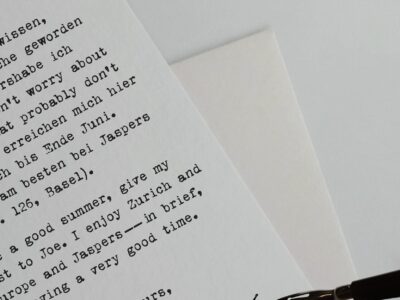 wissen,
che geworden
rshabe ich
n't worry about
at probably don't
erreichen mich hier
ch bis Ende Juni.
am besten bei Jaspers
. 126, Basel).
e a good summer, give my
st to Joe. I enjoy Zurich and
urope and Jaspers——in brief,
ving a very good time.
urs,